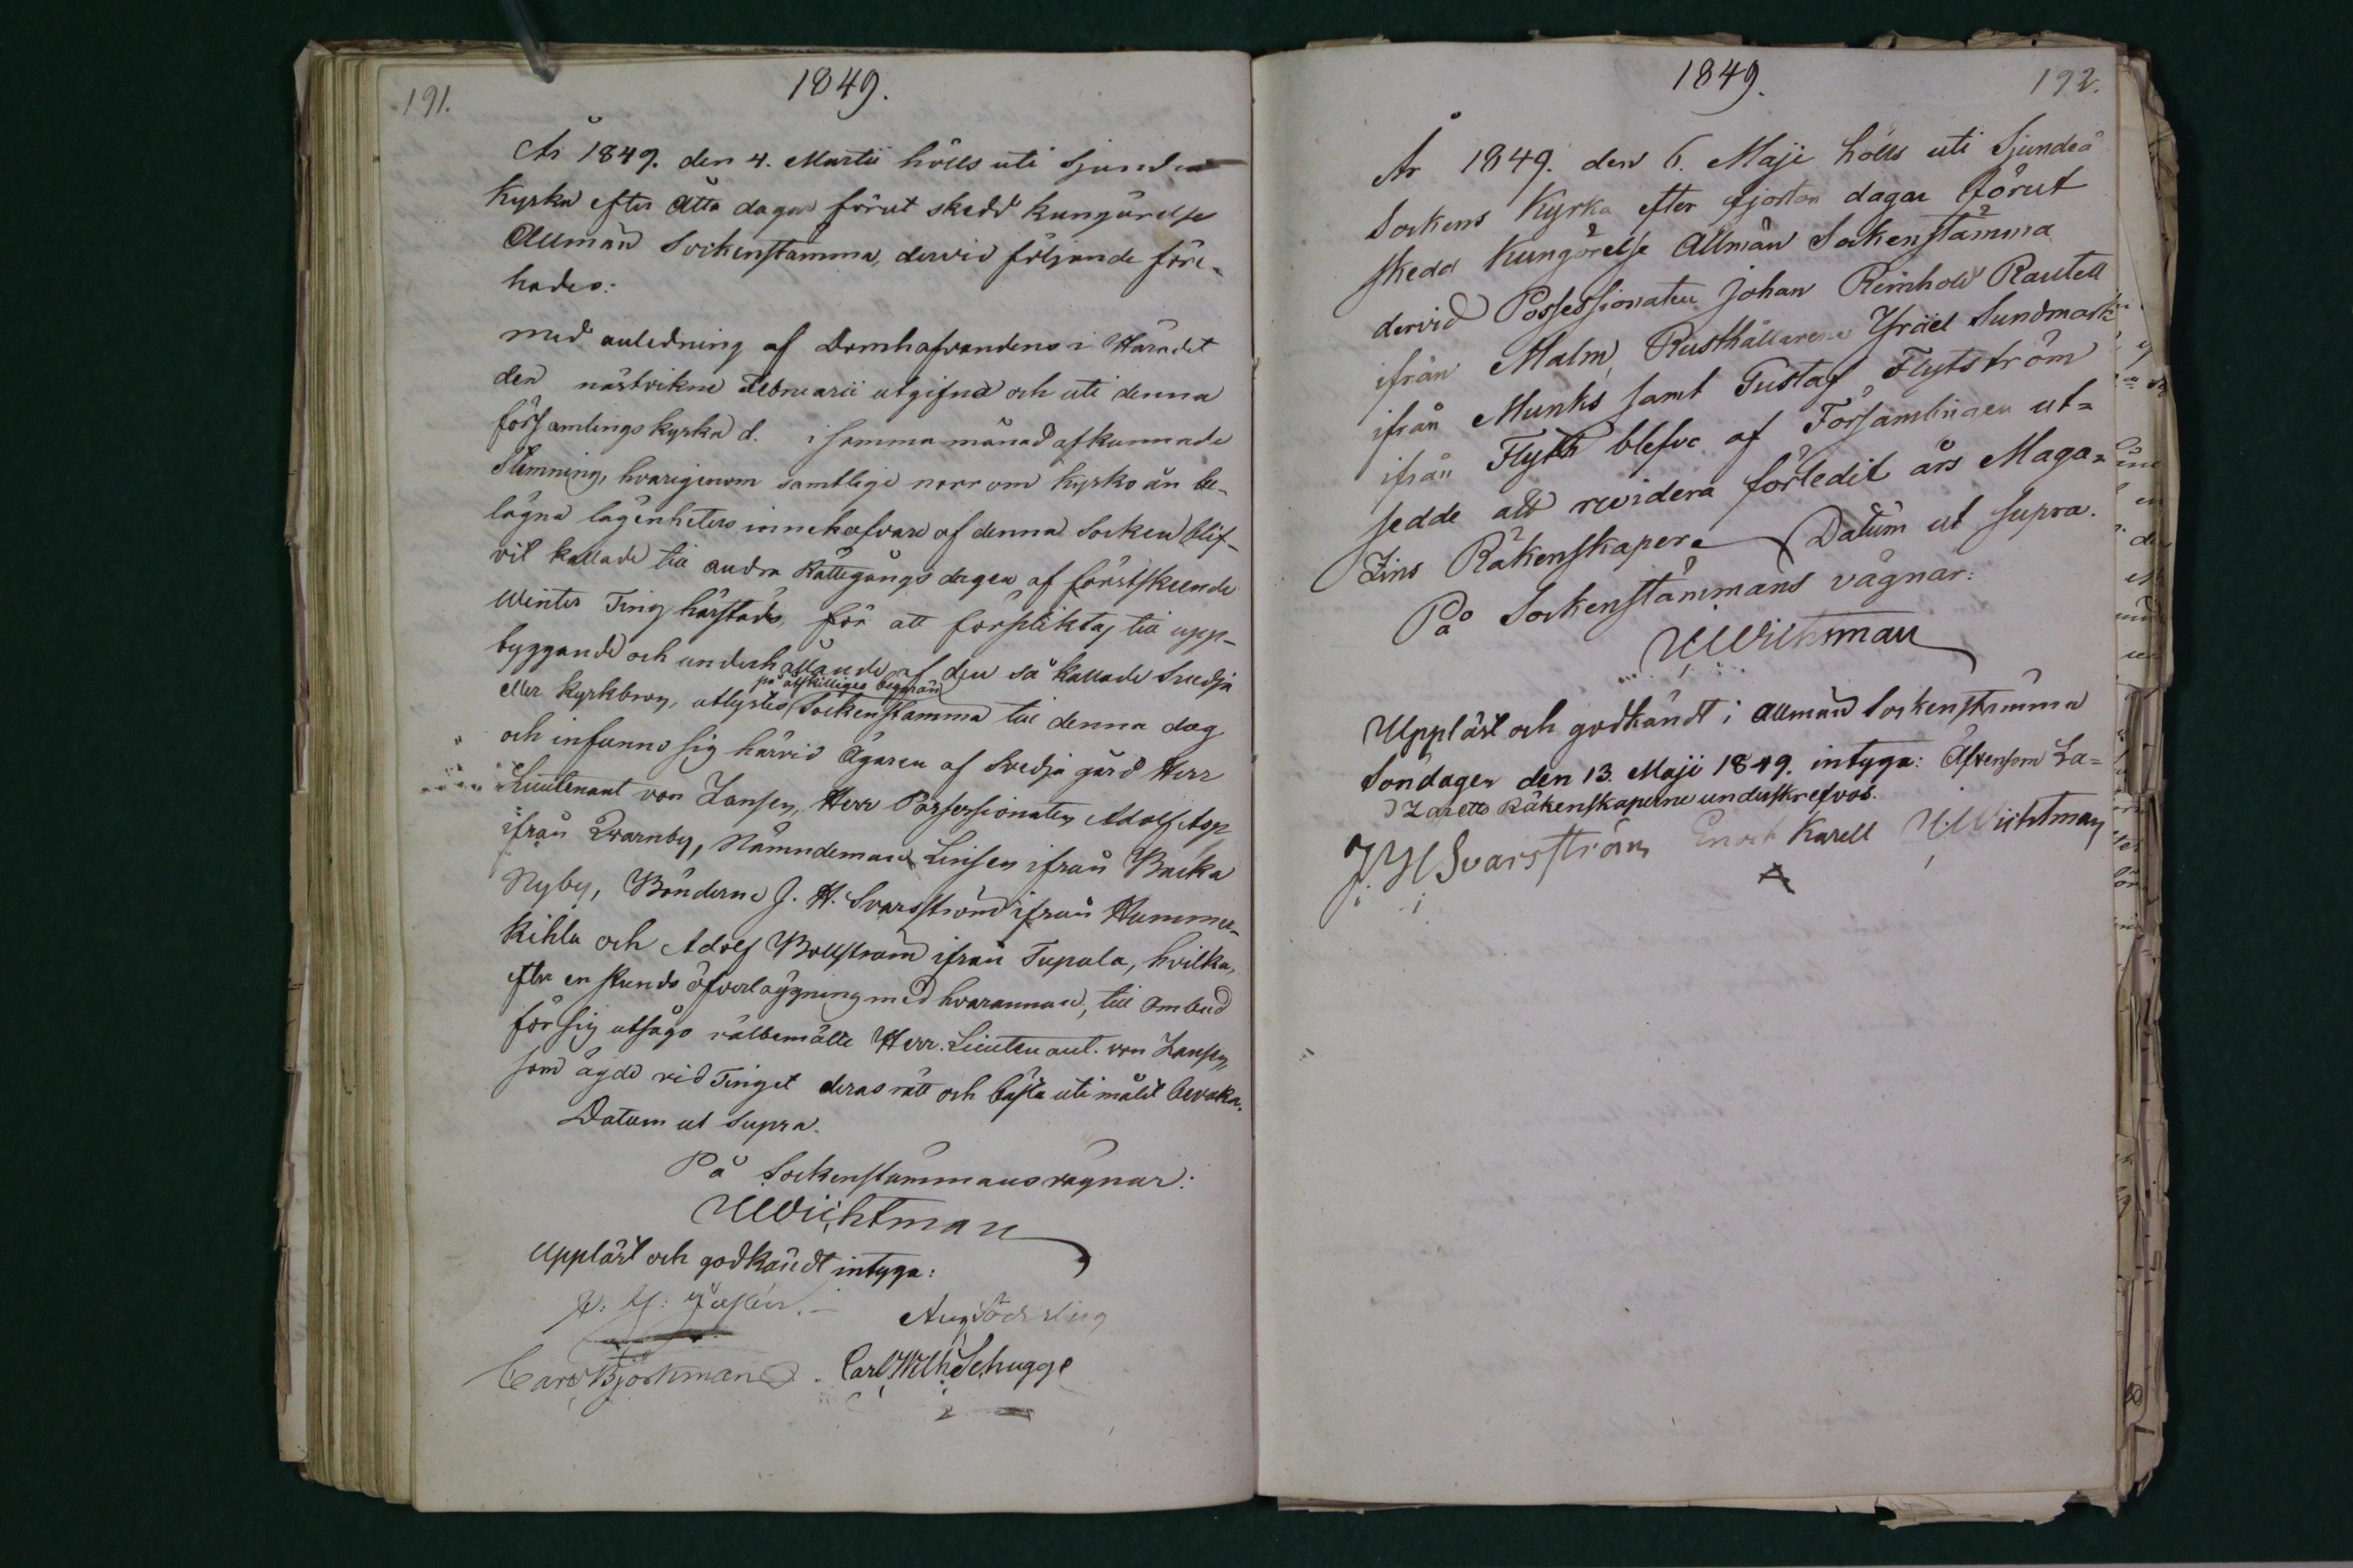 191.
1849.
År 1849. den 4. Martii hölls uti Sjundeå
Kyrka efter Åtta dagar förut skedd kungörelse
Allmän Sockenstämma, dervid följande före-
hades:
med anledning af Domhafvandens i Häradet
den nästvikne Februarii utgifna och uti denna
församlings kyrka d. i samma månad afkunnade
Stemning, hvarigenom samtlige norr om kyrko ån be-
lägna lägenheters innehafvare af denna Socken blif-
vit kallade till andra Rättegångs dagen af förstskeende
Winter Ting härstädes, för att förpliktas till upp-
byggande och underhållande af den så kallade Svedja
eller Kyrkbron, utlystes på åtskilliges begäran Sockenstämma till denna dag
och infunno sig härvid Ägaren af Svedja gård Herr
Lieutenant von Zansen, Herr Possessionaten Adolf Asp
ifrån Qvarnby, Nämndeman Linsen ifrån Backa
Nyby, Bönderne J. H. Svarsström ifrån Humme-
kihla och Adolf Bollström ifrån Tupala, hvilka,
efter en stunds öfverläggning med hvarannan, till Ombud
för sig utsågo välbemälte Herr Lieutenant von Zansen,
som ägde vid Tinget deras rätt och bästa uti målet bevaka.
Datum ut Supra.
På Sockenstämmans vägnar:
Wichtman
Uppläst och godkändt intyga:
Aug Söderling
Carl Björkman. Carl Wilh Schugge
1849.
192.
År 1849. den 6. Maji hölls uti Sjundeå
Sockens Kyrka efter fjorton dagar förut
skedd Kungörelse Allmän Sockenstämma
dervid Possessionaten Johan Reinhold Rautell
ifrån Malm, Rusthållarene Israel Sundmark
ifrån Munks samt Gustaf Flytström
ifrån Flyth blefvo af Församlingen ut-
sedde att revidera förledit års Maga-
zins Räkenskaper. Datum ut supra.
På Sockenstämmans vägnar:
Wichtman
Uppläst och godkändt i allmän Sockenstämma
Söndagen den 13. Maji 1849. intyga: Äfvensom La-
Zaretts Räkenskaperne underskrefvos.
J H Svarsström Enok Karell Wichtman